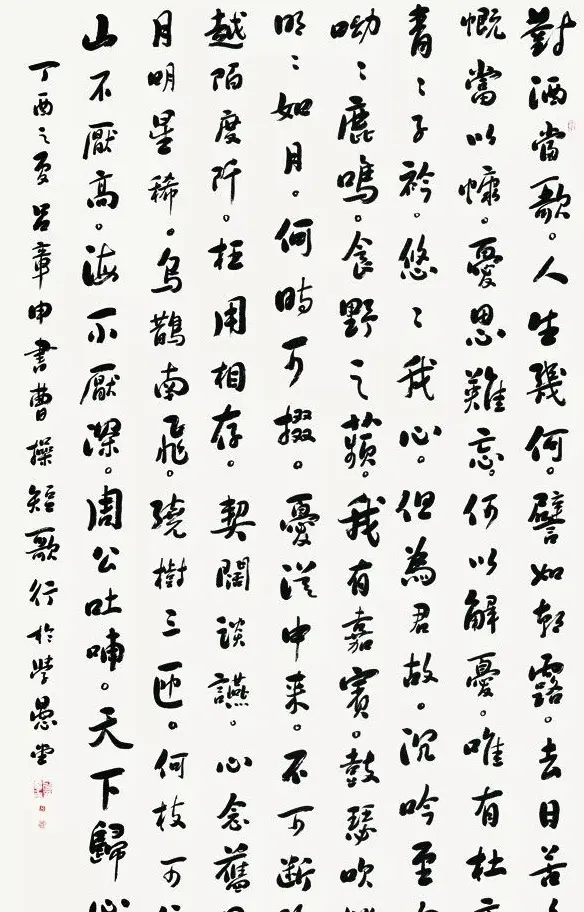 對酒當歌。人生幾何。譬如朝露。去日苦
慨當以慷。憂思難忘。何以解憂。唯有杜
青〻子衿。悠〻我心。但為君故。沉吟至
呦〻鹿鳴。食野之蘋。我有嘉賓。鼓瑟吹
明〻如月。何時可掇。憂從中来。不可斷
越陌度阡。枉用相存。契闊談讌。心念舊
月明星稀。烏鵲南飛。繞樹三匝。何枝可
山不厭高。海不厭深。周公吐哺。天下歸心
丁酉之夏呂章申書曹操短歌行於學愚堂